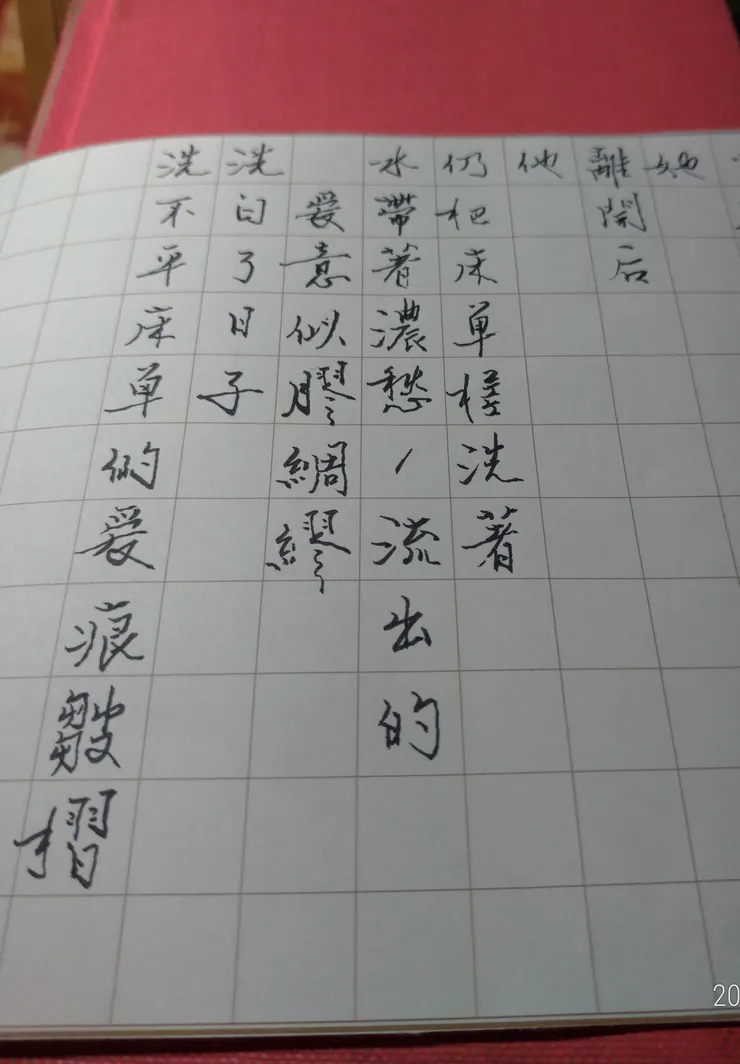 她
離開后
他
仍把床單搓洗著
水帶著濃愁/流出的
愛意似膠綢繆
洗白了日子
洗不平床單的愛痕皺摺
20